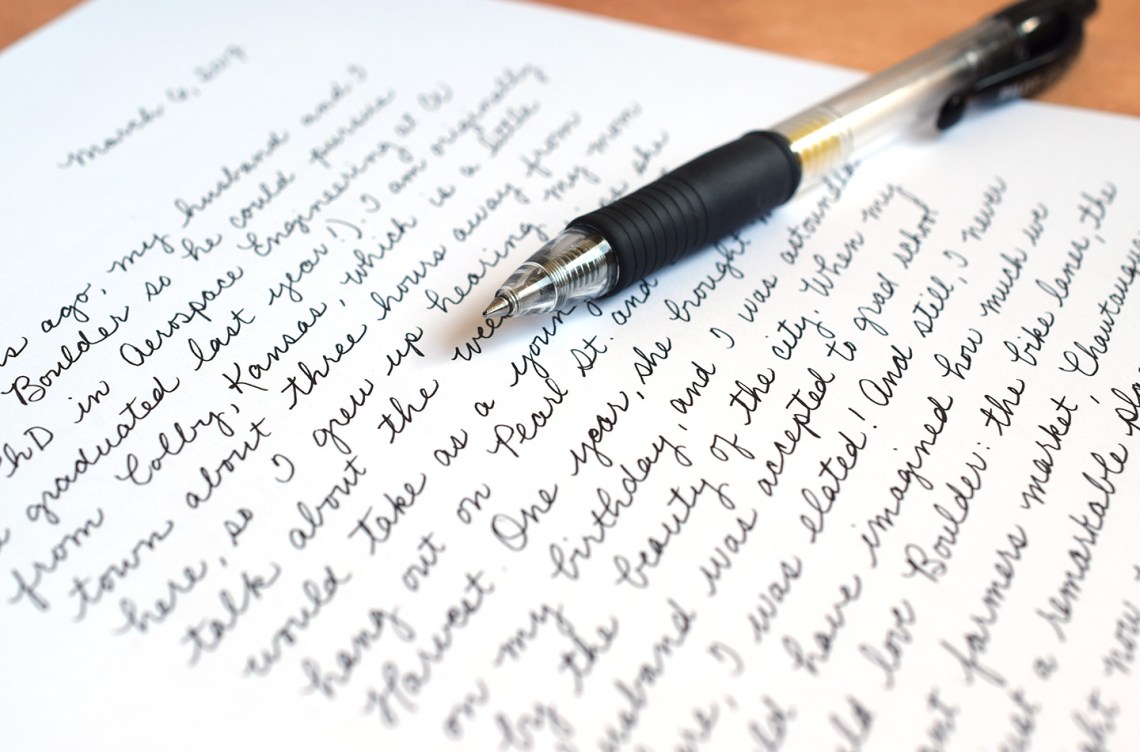 March 6, 2019
ago, my husband and I
Boulder so he could pursue
PhD in Aerospace Engineering at CU
graduated last year!). I am originally
from Colby, Kansas, which is a little
town about three hours away from
here, so I grew up hearing my mom
talk about the she
would take as a young
hang out on Pearl St. and
Harvest. One year, she brought
on my birthday, and I was astounded
by the beauty of the city. When my
husband was accepted to grad school
I was elated! And still, I never
have imagined how much we
love Boulder: the bike lanes, the
farmers market, Chautauqua
a remarkable
now